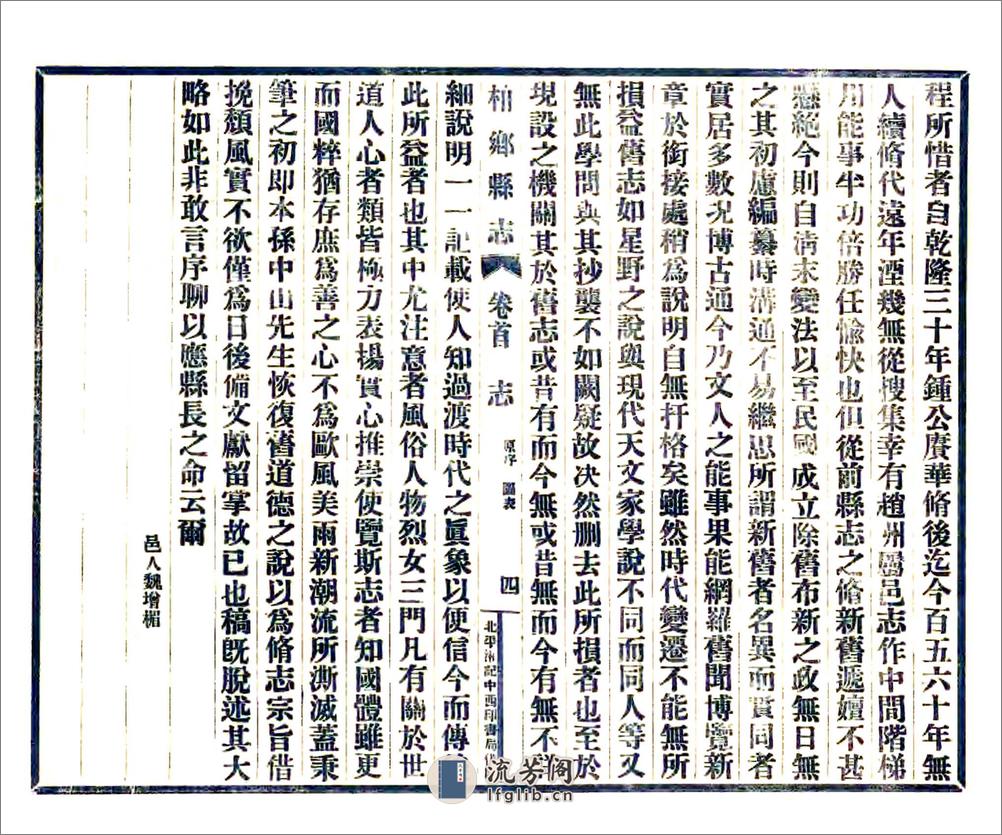 程所惜者自乾隆三十年鍾公賡華脩後迄今百五六十年無
人續脩代遠年湮幾無從搜集幸有趙州屬邑志作中間階梯
用能事半功倍勝任愉快也但從前縣志之脩新舊遞嬗不甚
懸絕今則自淸末變法以至民國成立除舊布新之政無日無
之其初慮編纂時溝通不易繼思所謂新舊者名異而實同者
實居多數况博古通今乃文人之能事果能網羅舊聞博覽新
章於銜接處稍爲說明自無扞格矣雖然時代變遷不能無所
損益舊志如星野之說與現代天文家學說不同而同人等又
無此學問與其抄襲不如闕疑故决然删去此所損者也至於
現設之機關其於舊志或昔有而今無或昔無而今有無不詳
柏鄉縣志 卷首 志 原序 圖表 四 北平 記中西印書局
細說明一一記載使人知過渡時代之眞象以便信今而傳
此所益者也其中尤注意者風俗人物烈女三門凡有關於世
道人心者類皆極力表揚實心推崇使覽斯志者知國體雖更
而國粹猶存庶爲善之心不爲歐風美雨新潮流所澌滅蓋秉
筆之初即本孫中山先生恢復舊道德之說以爲脩志宗旨借
挽頹風實不欲僅爲日後備文獻留掌故已也稿既脫述其大
略如此非敢言序聊以應縣長之命云爾
邑人魏增楣
流芳阁
lfglib.cn